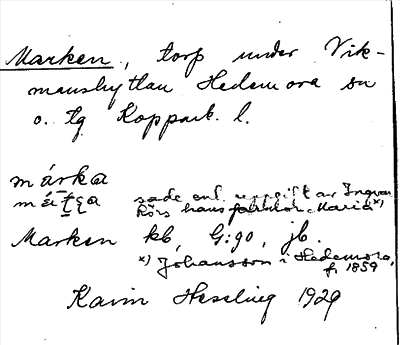 Marken, torp under Vik-
manshyttan Hedemora sn
o. tg Kopparb. l.
márka
sade enl. uppgift av Ingvar
Lörs hans faster Maria x)
Marken kb, G:90, jb.
x) Johansson i Hedemora,
f. 1859
Karin Hesseling 1929